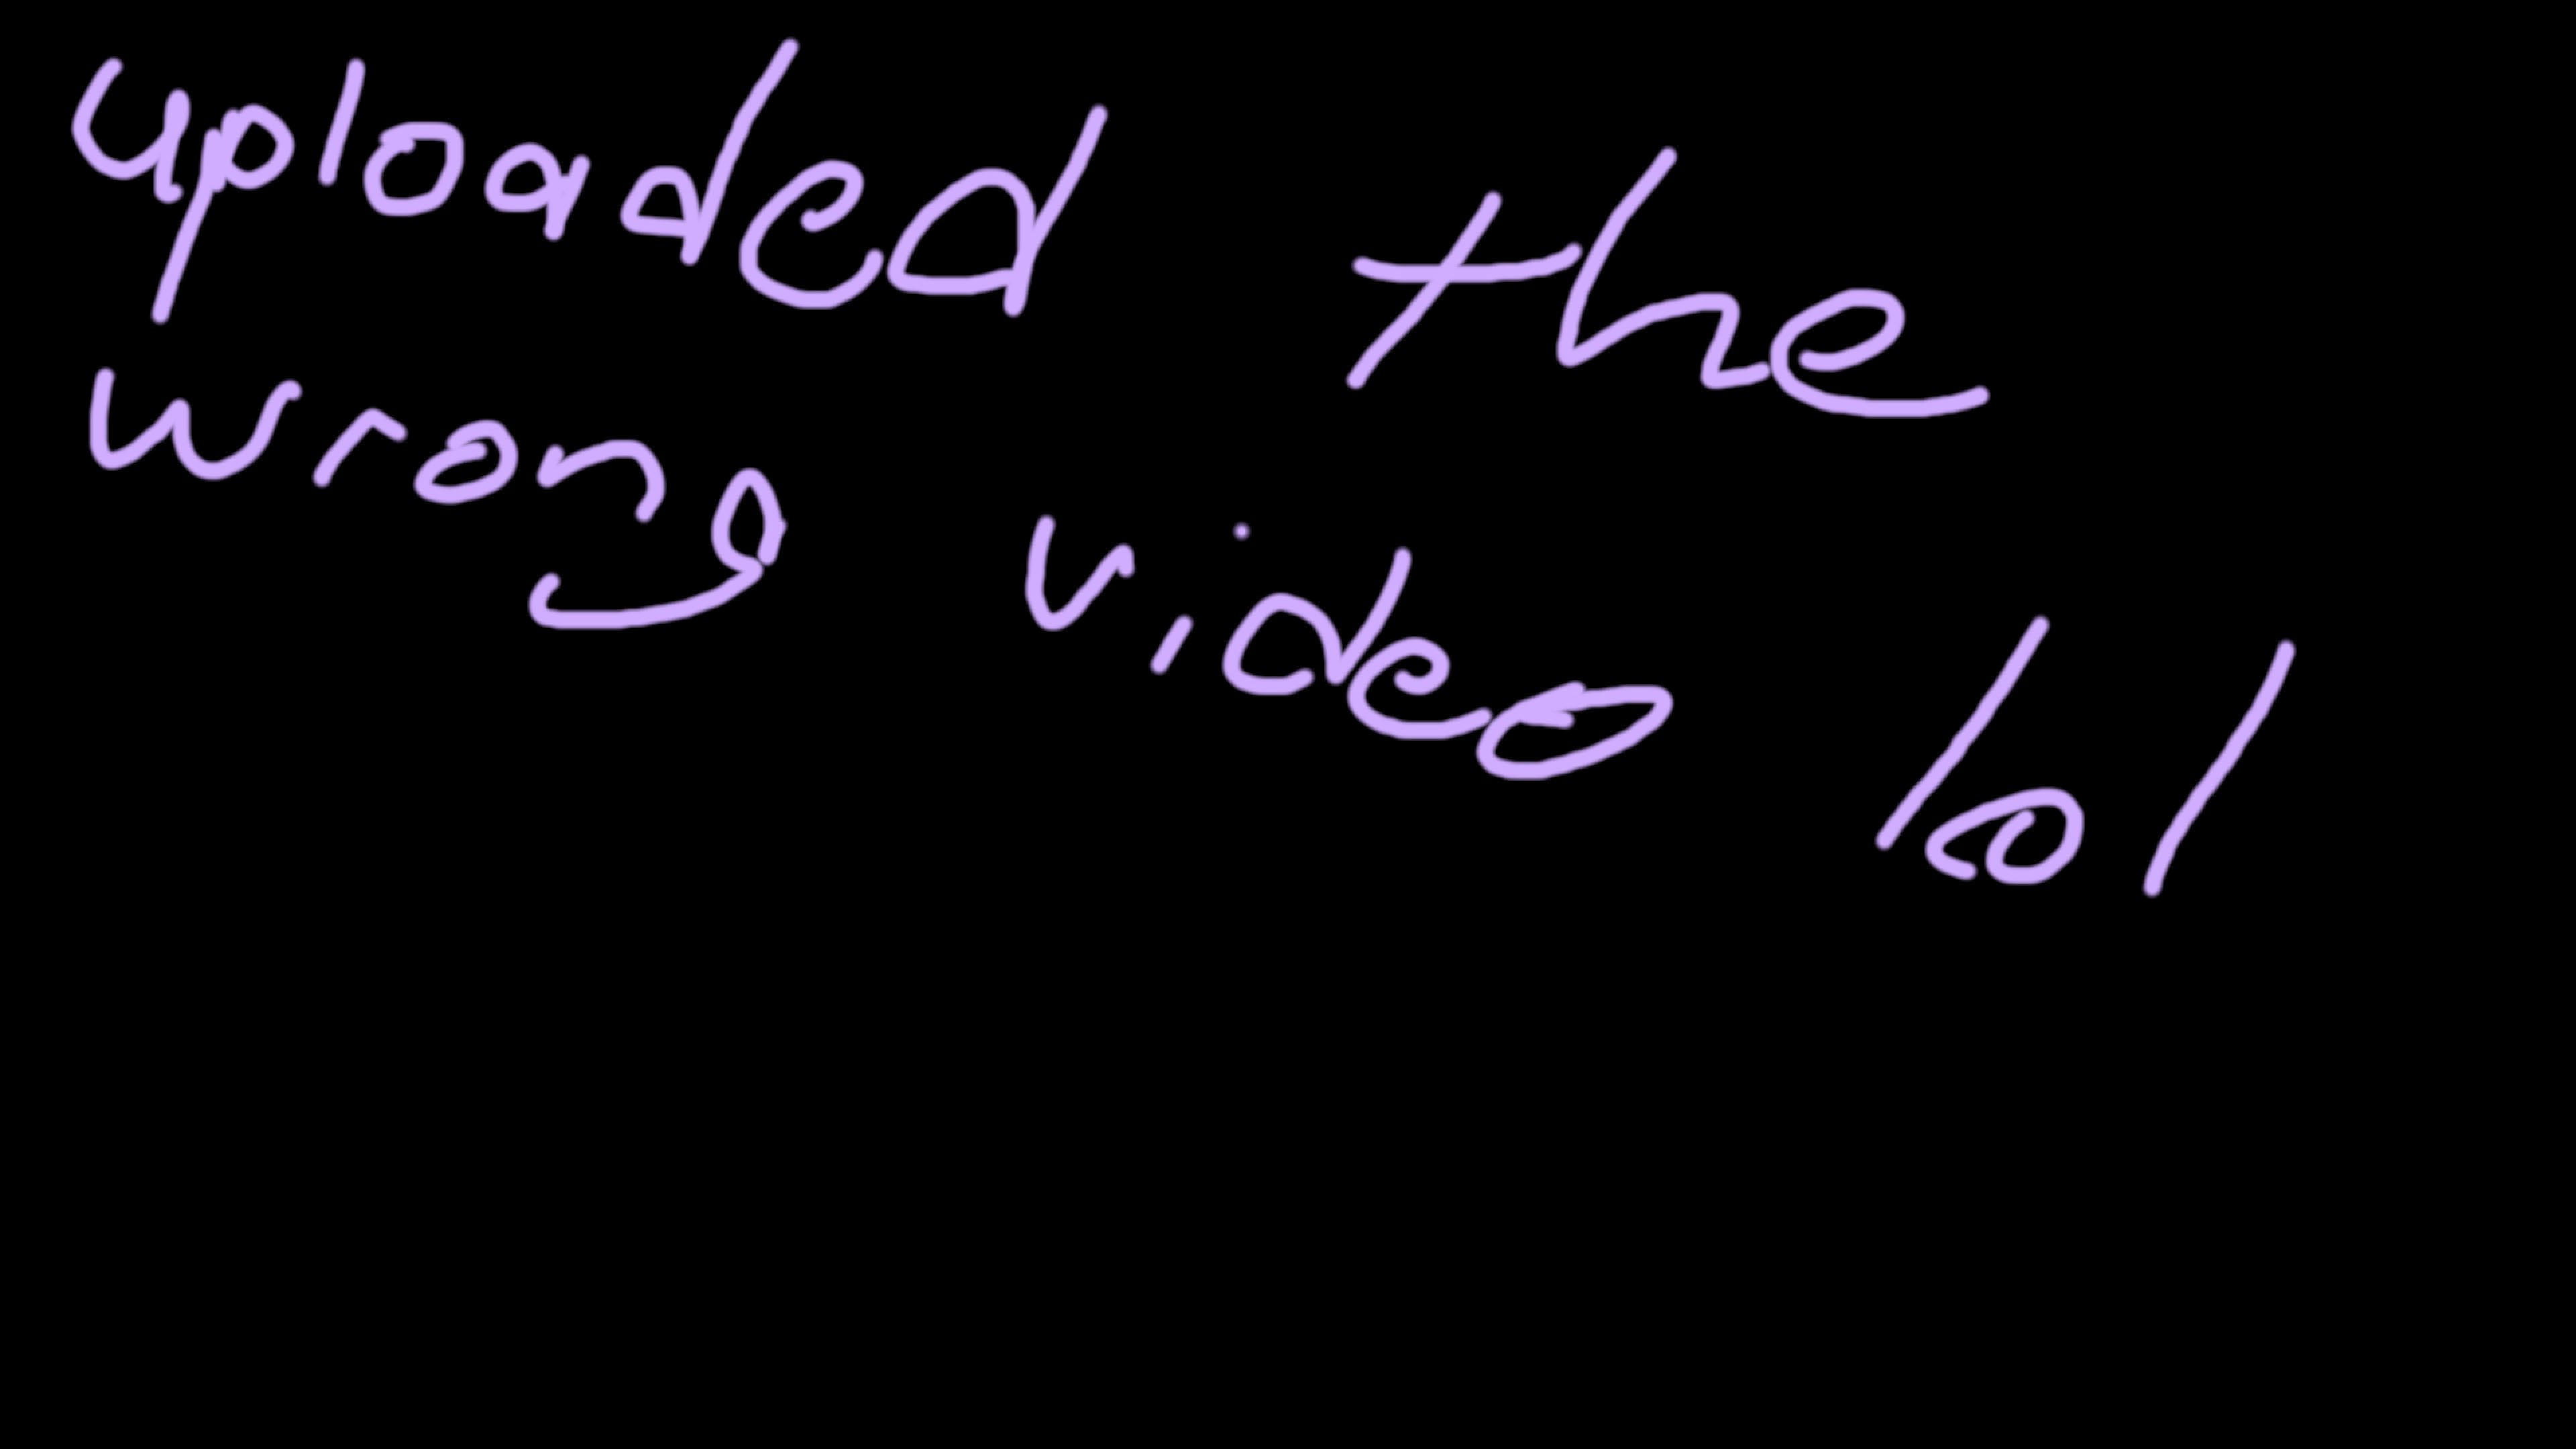 uploaded the
wrong video lol